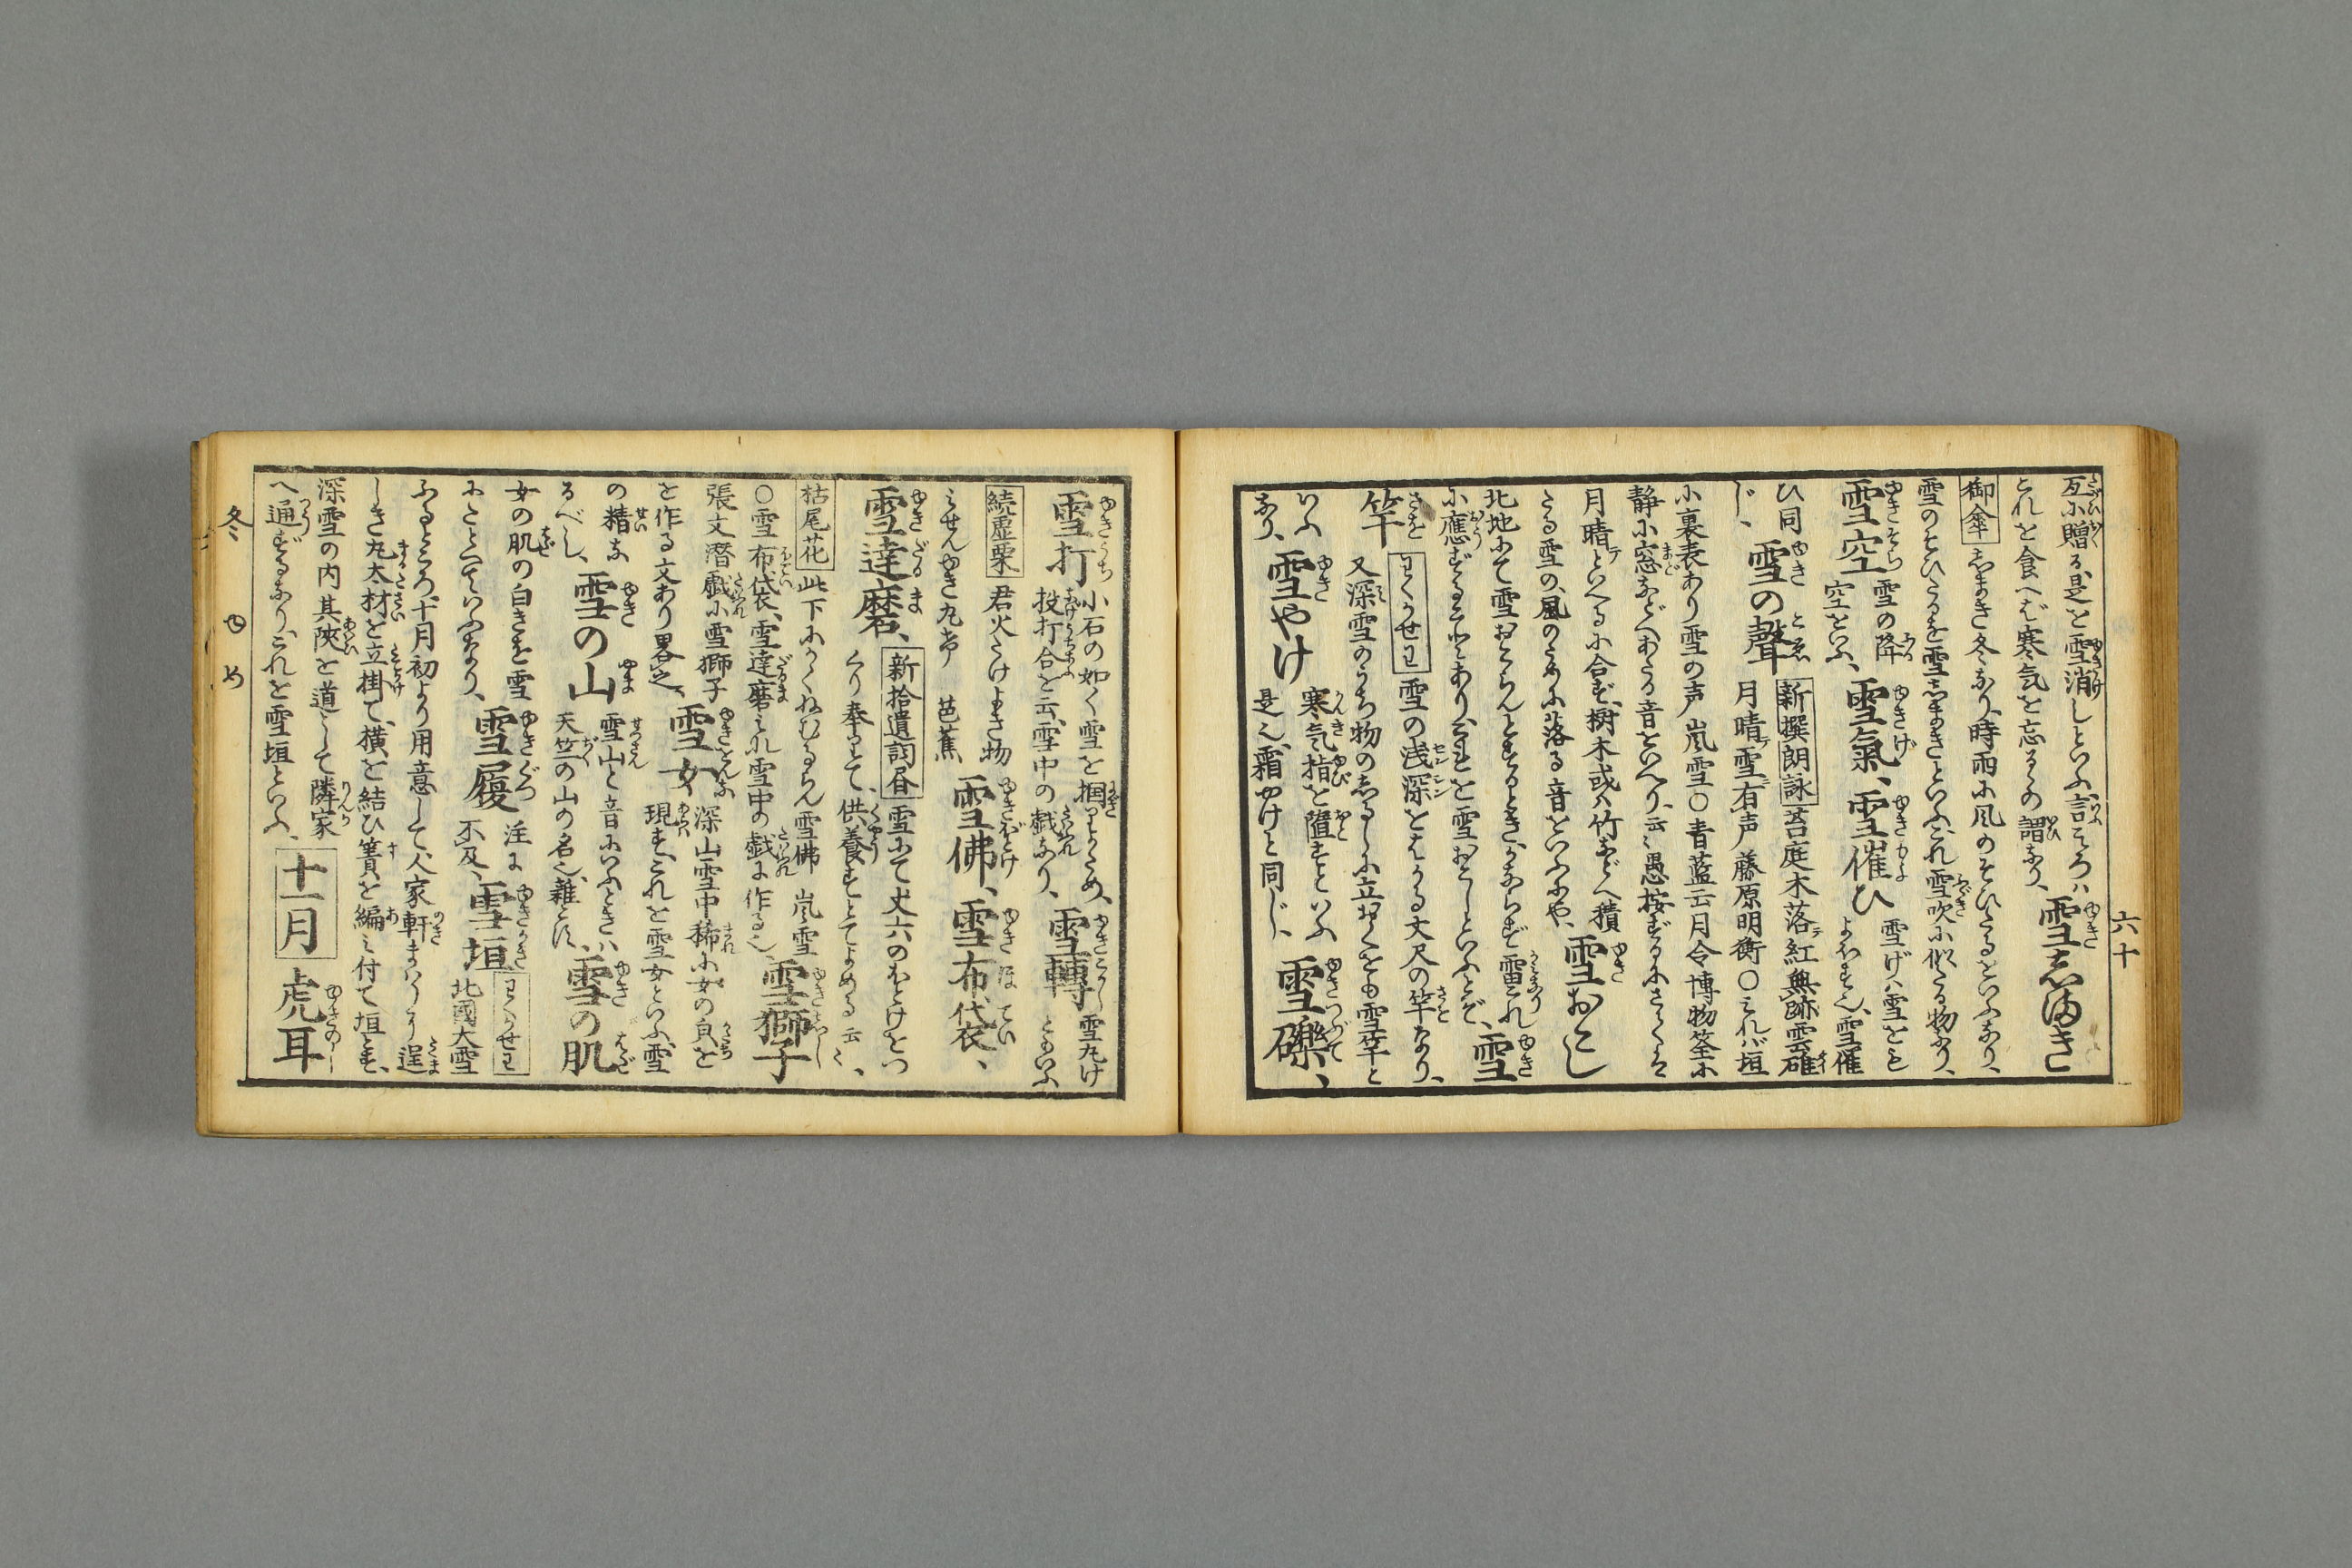 互に贈る是を雪消しといふ、言こゝろハ
これを食へば寒気を忘るゝの謂なり、雪志まき
御傘 志まき冬なり、時雨に風のそひたるをいふなり、
雪のそひたるを雪志まきといふ、これ雪吹に似たる物なり、
雪空 雪の降空をいふ、雪氣、雪催ひ 雪げハ雪をもよほす也、雪催
ひ同じ、雪の聲 新撰朗詠 苔庭木落紅無跡雲碓
月晴雪有声 藤原明衡 〇これバ垣
に裏表あり雪の声 嵐雪 〇青藍云月令博物筌に
静に窓などへあたる音をいへり、云々愚按ずるに
月晴といへるに合ず、樹木或ハ竹などへ積
たる雪の、風のために落る音をいふにや、雪おこし
北地にて雪おこらんとするとき、かならず雷これ
に應ずる、これを雪おこしといふとぞ、雪
竿 わくかせわ 雪の浅深をはかる丈尺の竿なり、
又深雪のうち物の志るしに立おくをも雪竿と
いふなり、雪やけ 寒気指を堕すといふ
是也、霜やけと同じ、雪礫、
雪打 小石の如く雪を掴かため、投打合を云、雪中の戯なり、雪轉 雪丸げともいふ
続虚栗 君火たけよき物
みせんゆき丸げ 芭蕉 雪佛、雪布袋、
雪達磨、新拾遺詞書 雪にて丈六のほとけをつ
くり奉りて、供養すとてよめる云々、
枯尾花 此下にかくねむるらん雪佛 嵐雪
〇雪布袋、雪達磨これ雪中の戯に作る也 雪獅子
張文潜戯に雪獅子
を作る文あり畧之、雪女 深山雪中稀に女の㒵を現す、これを雪女といふ、雪
の精なるべし、雪の山 雪山と音にいふときハ、天竺の山の名也、雑とす、雪の肌
女の肌の白きを雪
にたとへていふなり、雪履 注に不及、雪垣 わくかせわ 北國大雪
ふるところ、十月初より用意して、人家軒まハりより逞
しき丸太材を立掛て、横を結ひ簀を編み付て垣とす、
深雪の内其陜を道として隣家
へ通ずるなり、これを雪垣といふ、十一月 虎耳
冬 ゆ め
六十